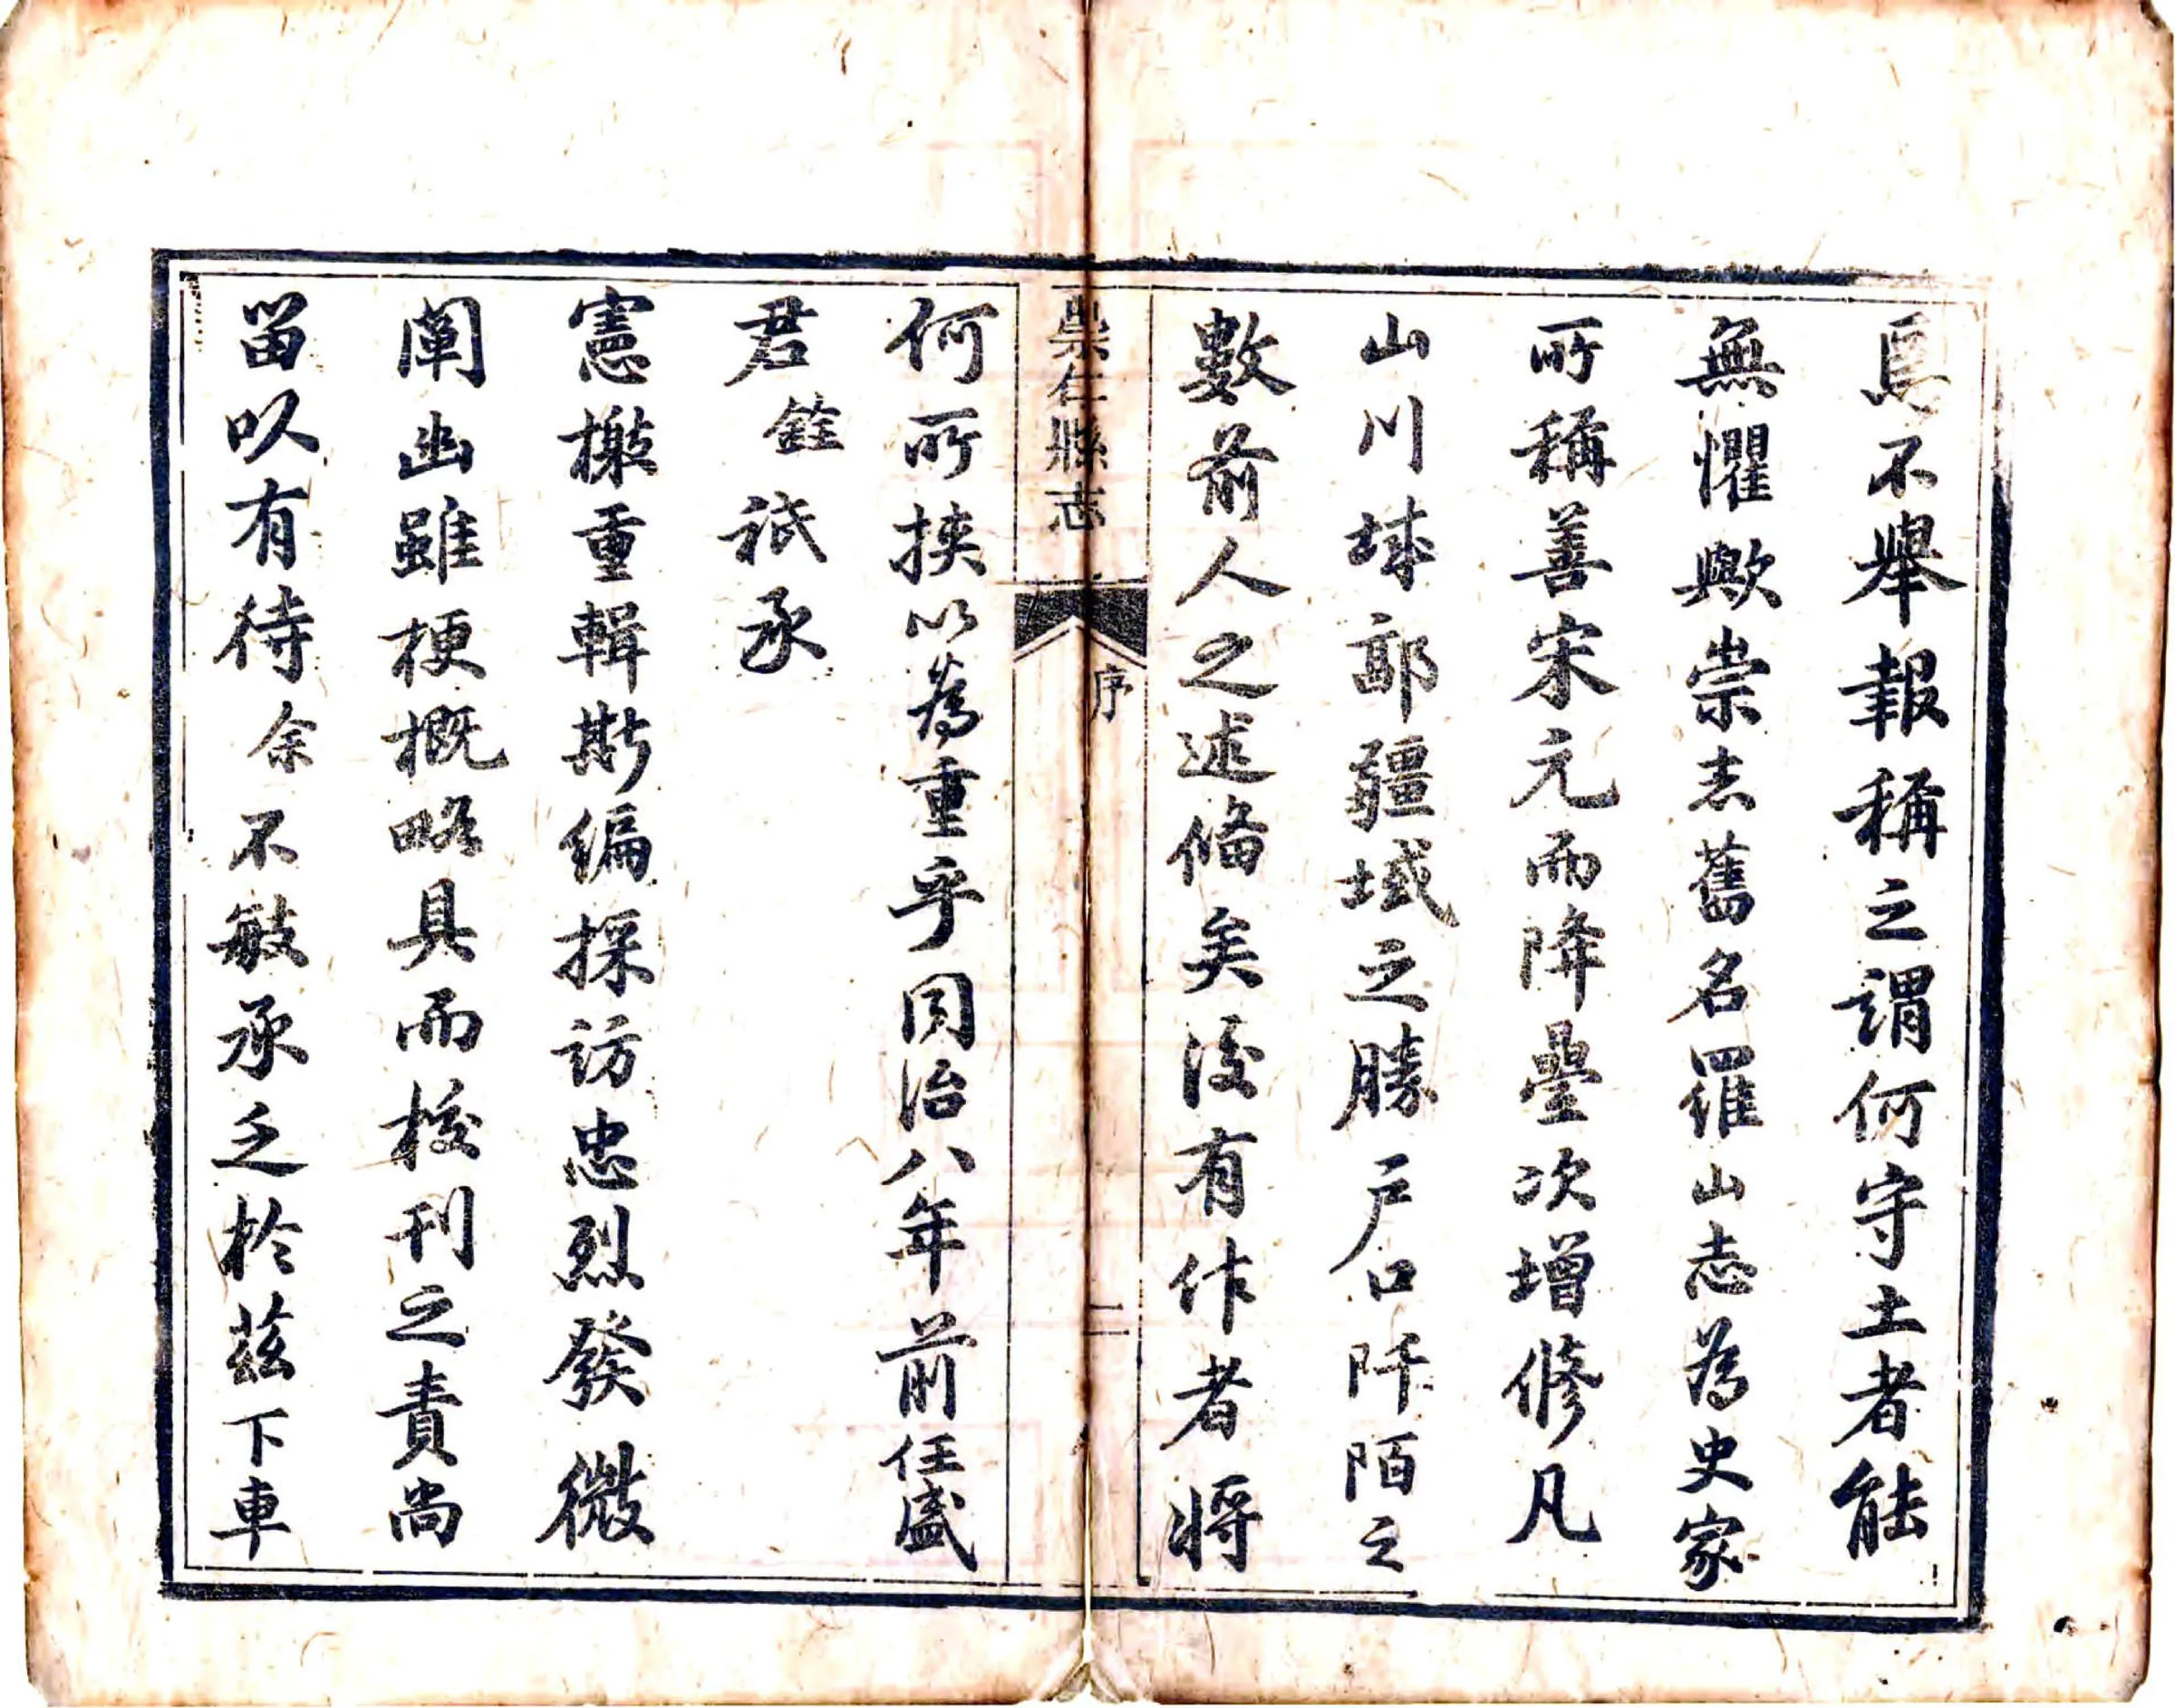 焉不舉報稱之謂何守土者能
無懼歟崇志舊名羅山志為史家
所稱善宋元而降疊次增修凡
山川城郭疆域之勝戶口阡陌之
數前人之述備矣後有作者將
崇仁縣志
序
二
何所挾以為重乎同治八年前任盛
君銓祇承
憲檄重輯斯編採訪忠烈發微
闡幽雖梗概略具而校刊之責尚
留以有待余不敏承乏於茲下車